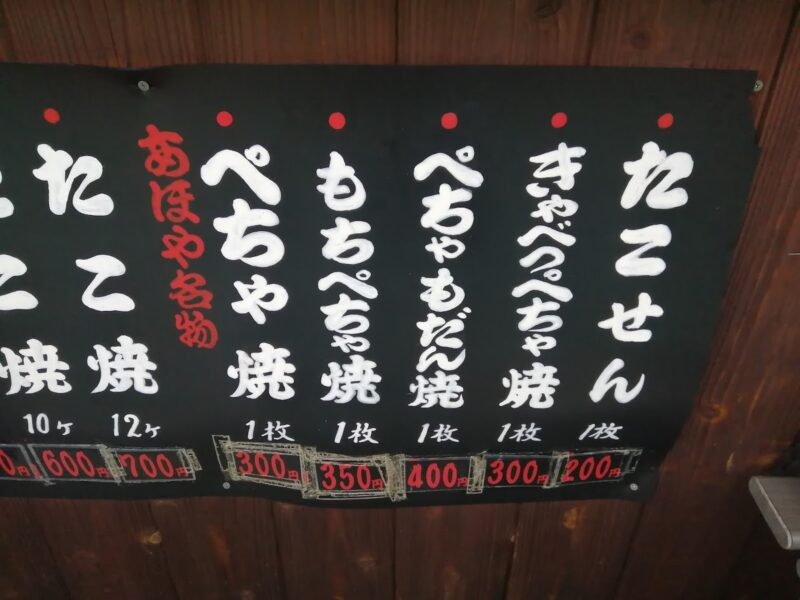 たこせん
1枚
200円
きゃべっぺちゃ焼
1枚
300円
ぺちゃもだん焼
1枚
400円
もちぺちゃ焼
1枚
350円
ぺちゃ焼
1枚
300円
あほや名物
たこ焼
12ヶ
700円
こ焼
10ヶ
600円
0円